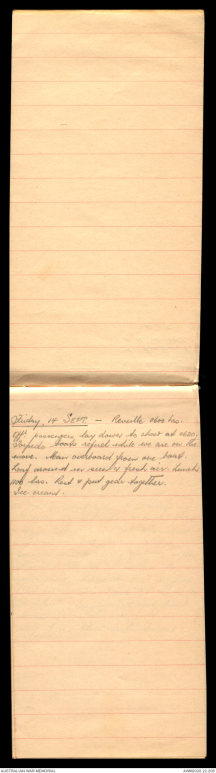 Friday, 14 SEPT. — Reveille 0600 hrs.
Off passengers lay down to shoot at 0630.
Torpedo boats refuel while we are on the
move. Man overboard from one boat.
Loaf around in seas & fresh air. Lunch
1100 hrs. Rest & put gear together.
Ice cream.
AUSTRALIAN WAR MEMORIAL